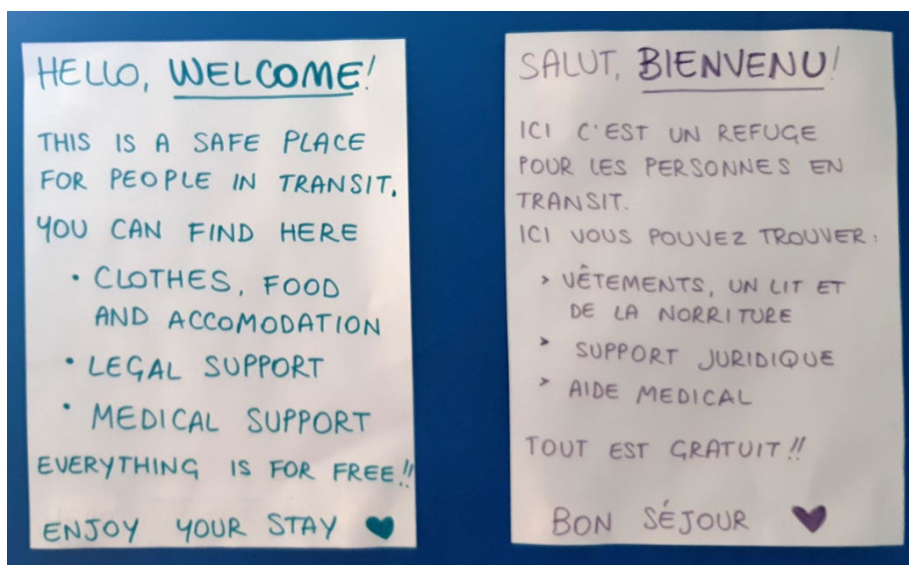 HELLO, WELCOME!
THIS IS A SAFE PLACE
FOR PEOPLE IN TRANSIT.
YOU CAN FIND HERE
• CLOTHES, FOOD
AND ACCOMODATION
• LEGAL SUPPORT
• MEDICAL SUPPORT
EVERYTHING IS FOR FREE!!
ENJOY YOUR STAY ♥
SALUT, BIENVENU!
ICI C'EST UN REFUGE
POUR LES PERSONNES EN
TRANSIT.
ICI VOUS POUVEZ TROUVER:
> VÊTEMENTS, UN LIT ET
DE LA NORRITURE
> SUPPORT JURIDIQUE
> AIDE MEDICAL
TOUT EST GRATUIT!!
BON SÉJOUR ♥